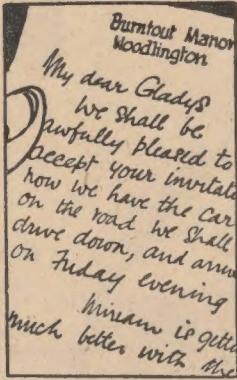 Burntout Manor
Woodlington
My dear Gladys
We shall be
awfully pleased to
accept your invitat
now we have the car
on the road we shall
drive down, and arriv
on Friday evening
Miriam is gett
much better with the